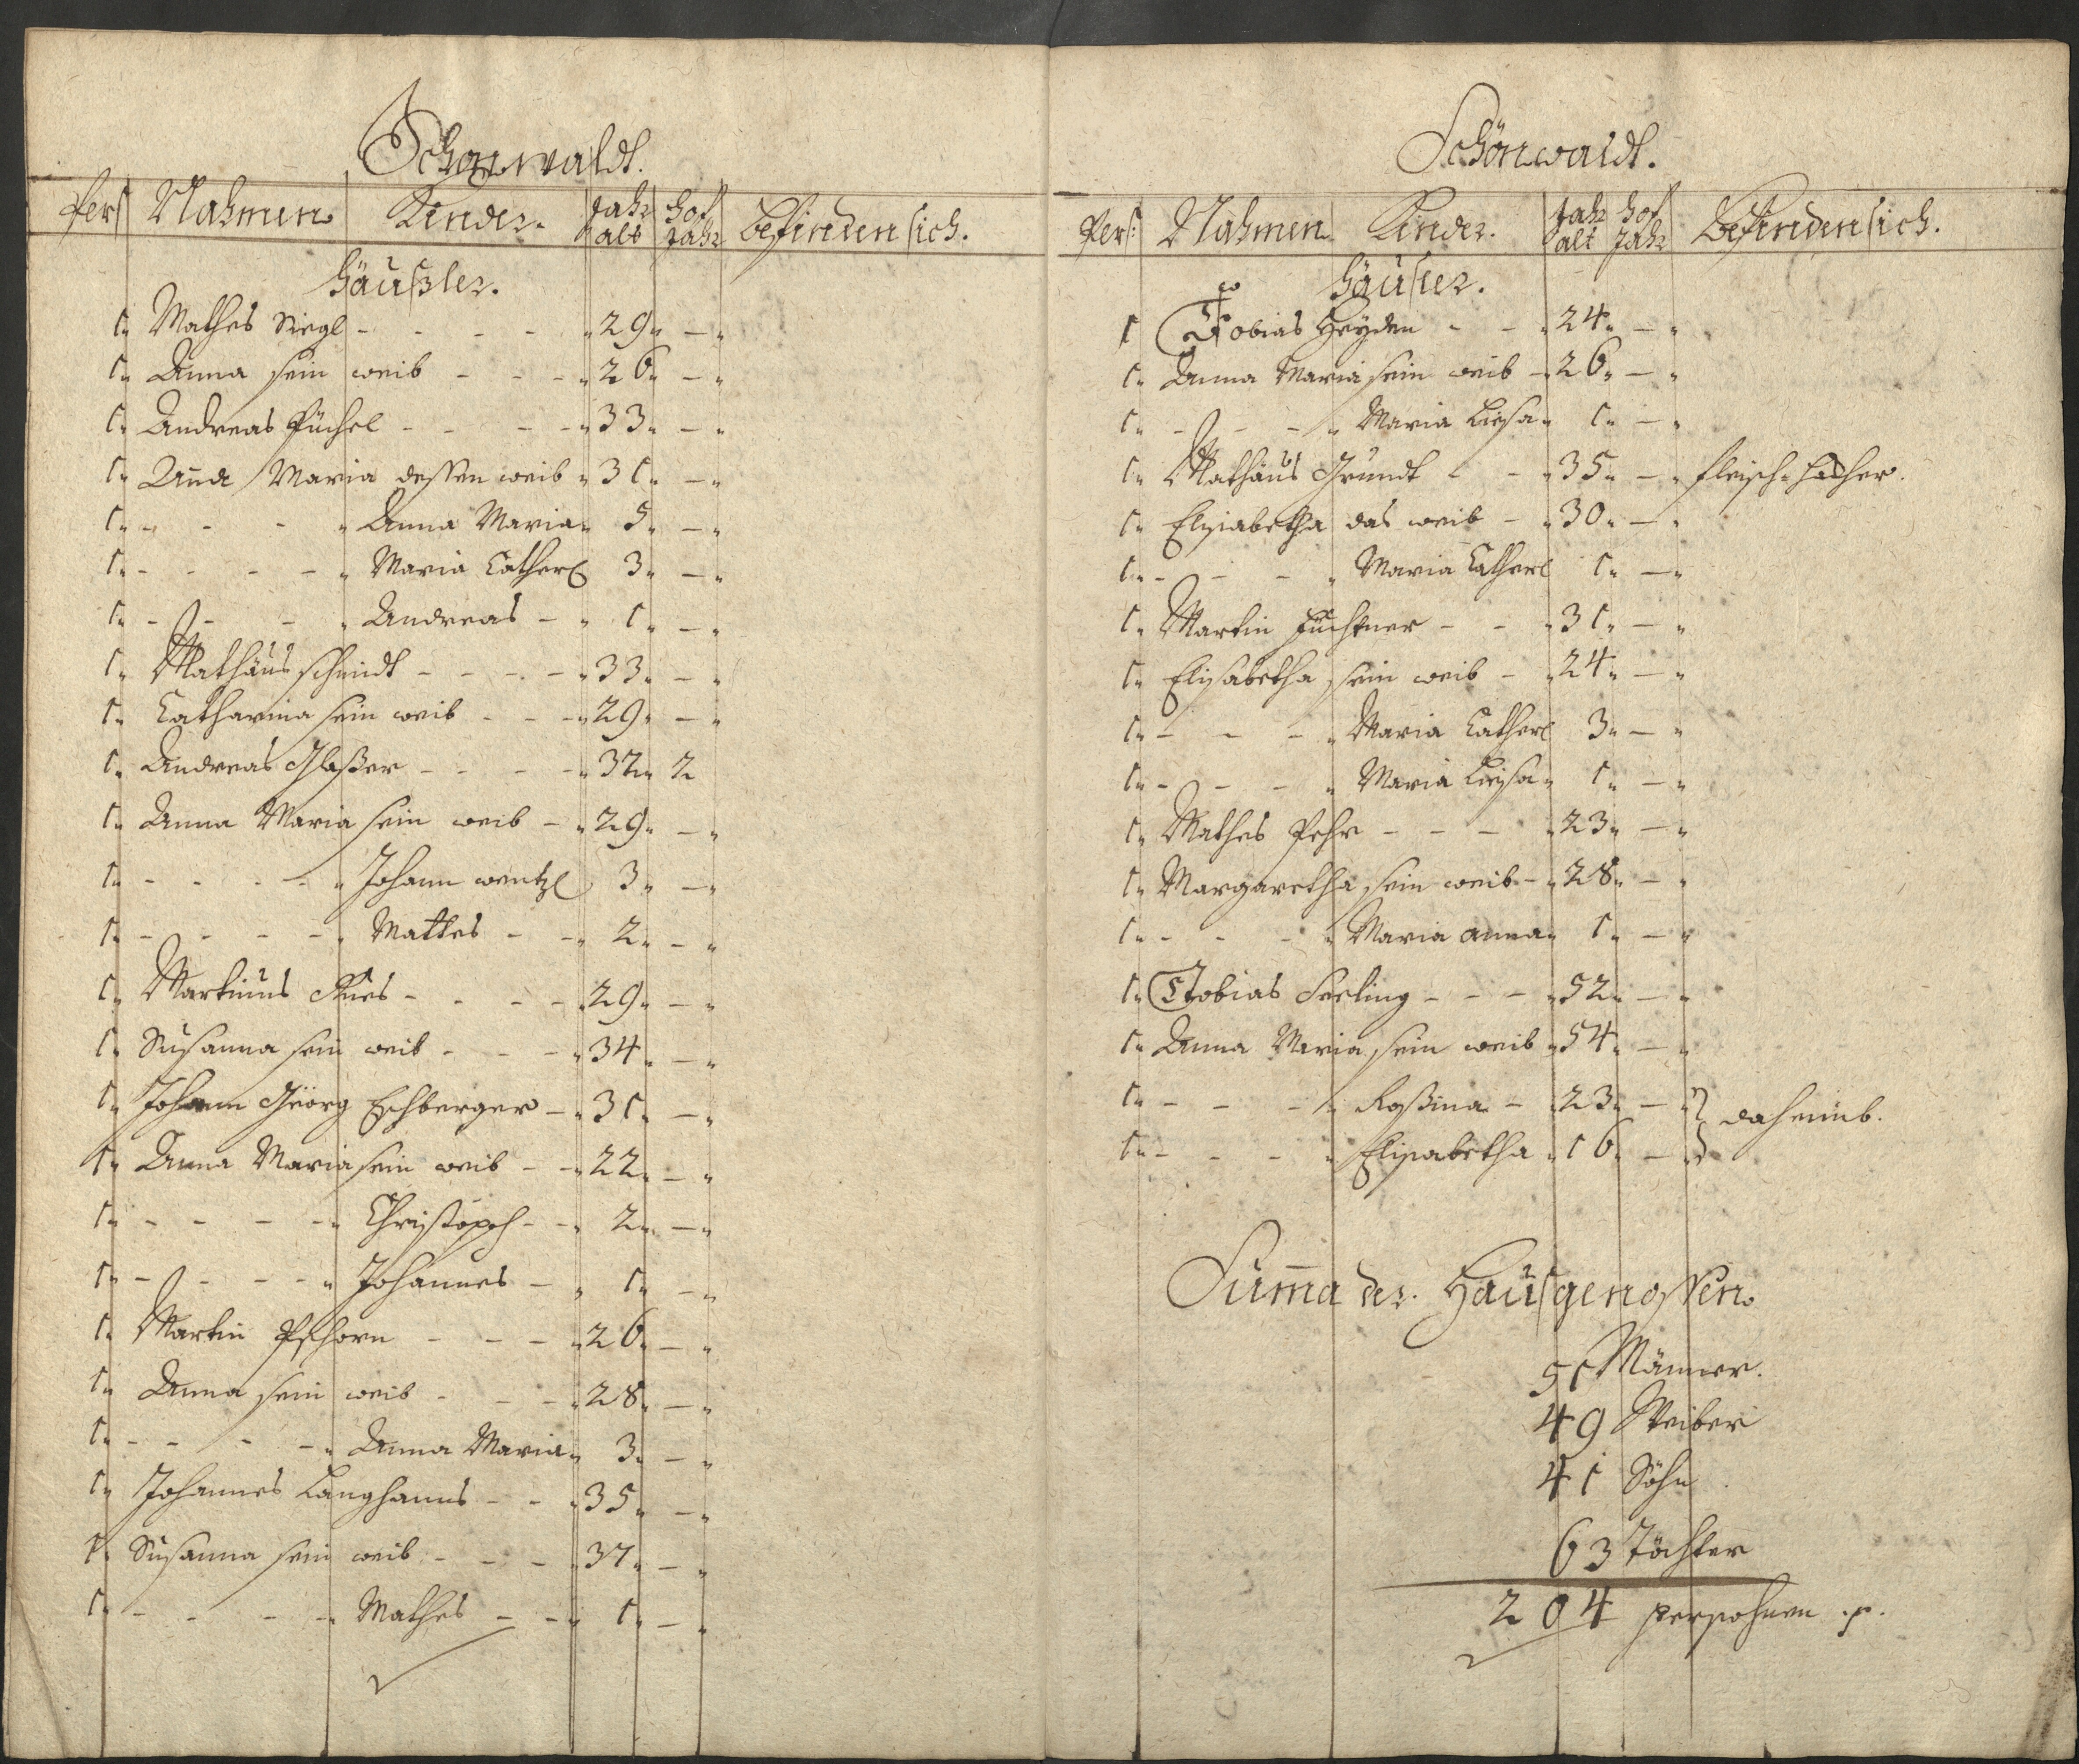 Schönwaldt.
Pers Nahmen Kinder. Jahr alt hof Jahr befinden sich.
häußler.
1 Mathes Siegl - - - - 29 -
1 Anna sein weib - - - 26 -
1 Andreas Püchel - - - - 33 -
1 Anna Maria dessen weib 31 -
1 - - - Anna Maria 5 -
1 - - - - Maria Catherl 3 -
1 - - - Andreas - 1 -
1 Mathäus schmidt - - - - 33 -
1 Catharina sein weib - - - 29 -
1 Andreas Glaßer - - - - 32 2
1 Anna Maria sein weib - 29 -
1 - - - - Johann wentzl 3 -
1 - - - - Mathes - - 2 -
1 Martinus - - - - 29 -
1 Susanna sein weib - - - 34 -
1 Johann Geörg Eschberger - 31 -
1 Anna Maria sein weib - - 22 -
1 - - - - Christoph - - 2 -
1 - - - - Johannes - 1 -
1 Martin Pschorn - - - 26 -
1 Anna sein weib - - - 28 -
1 - - - - Anna Maria 3 -
1 Johannes Langhanns - - 35 -
1 Susanna sein weib - - - 37 -
1 - - - - Mathes - - 1 -
Schönwaldt.
Pers: Nahmen Kinder. Jahr alt hof Jahr Befinden sich.
häusler.
1 Tobias Heyden - - 24 -
1 Anna Maria sein weib - 26 -
1 - - - Maria Liesa 1 -
1 Mathäus Grundt - - 35 - fleisch-hacher.
1 Elsiabetha das weib - 30 -
1 - - - Maria Catherl 1 -
1 Martin - - 31 -
1 Elisabetha sein weib - 24 -
1 - - - Maria Catherl 3 -
1 - - - Maria Liesa 1 -
1 Mathes Pehr - - - 23 -
1 Margaretha sein weib - 28 -
1 - - - Maria anna 1 -
1 Tobias Seeling - - - 52 -
1 Anna Maria sein weib 54 -
1 - - - Roßina - 23 -
1 - - - Elisabetha 16 - daheimb.
Summa der Hausgenossen
51 Männer.
49 Weiber
41 Söhn
63 Töchter
204 persohnen .p.